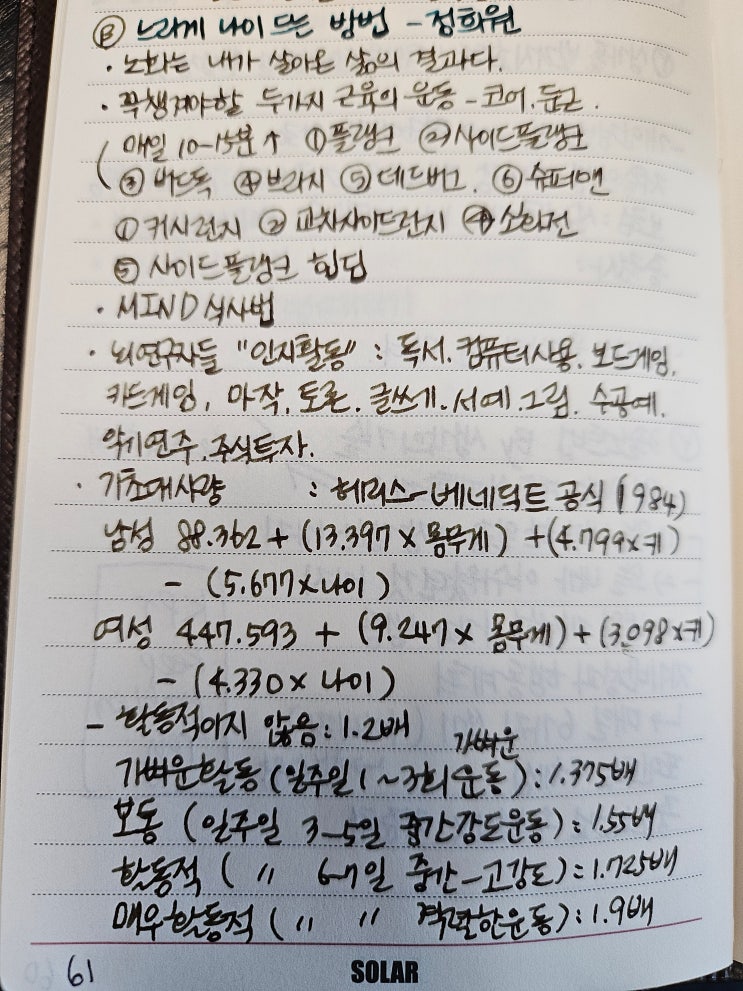 ⑬ 느리게 나이 드는 방법 - 정희원
· 노화는 내가 살아온 삶의 결과다.
· 꼭 챙겨야할 두가지 근육의 운동 - 코어. 둔근.
( 매일 10~15분 ↑ ① 플랭크 ② 사이드플랭크
③ 버드독 ④ 브릿지 ⑤ 데드버그. ⑥ 슈퍼맨
① 커시런지 ② 교차사이드런지 ④ 소화전
⑤ 사이드플랭크 힙딥
· MIND 식사법
· 뇌연구자들 "인지활동" : 독서. 컴퓨터사용. 보드게임.
카드게임, 마작. 토론. 글쓰기. 서예. 그림. 수공예.
악기연주. 주식투자.
· 기초대사량 : 해리스-베네딕트 공식 (1984)
남성 88.362 + (13.397 × 몸무게) + (4.799×키)
- (5.677×나이)
여성 447.593 + (9.247 × 몸무게) + (3.098×키)
- (4.330 × 나이)
- 활동적이지 않음 : 1.2배
가벼운활동 (일주일 1~3회 가벼운 운동) : 1.375배
보통 (일주일 3-5일 중간강도운동) : 1.55배
활동적 ( 〃 6-7일 중간-고강도) : 1.725배
매우활동적 ( 〃 〃 격렬한운동) : 1.9배
61
SOLAR